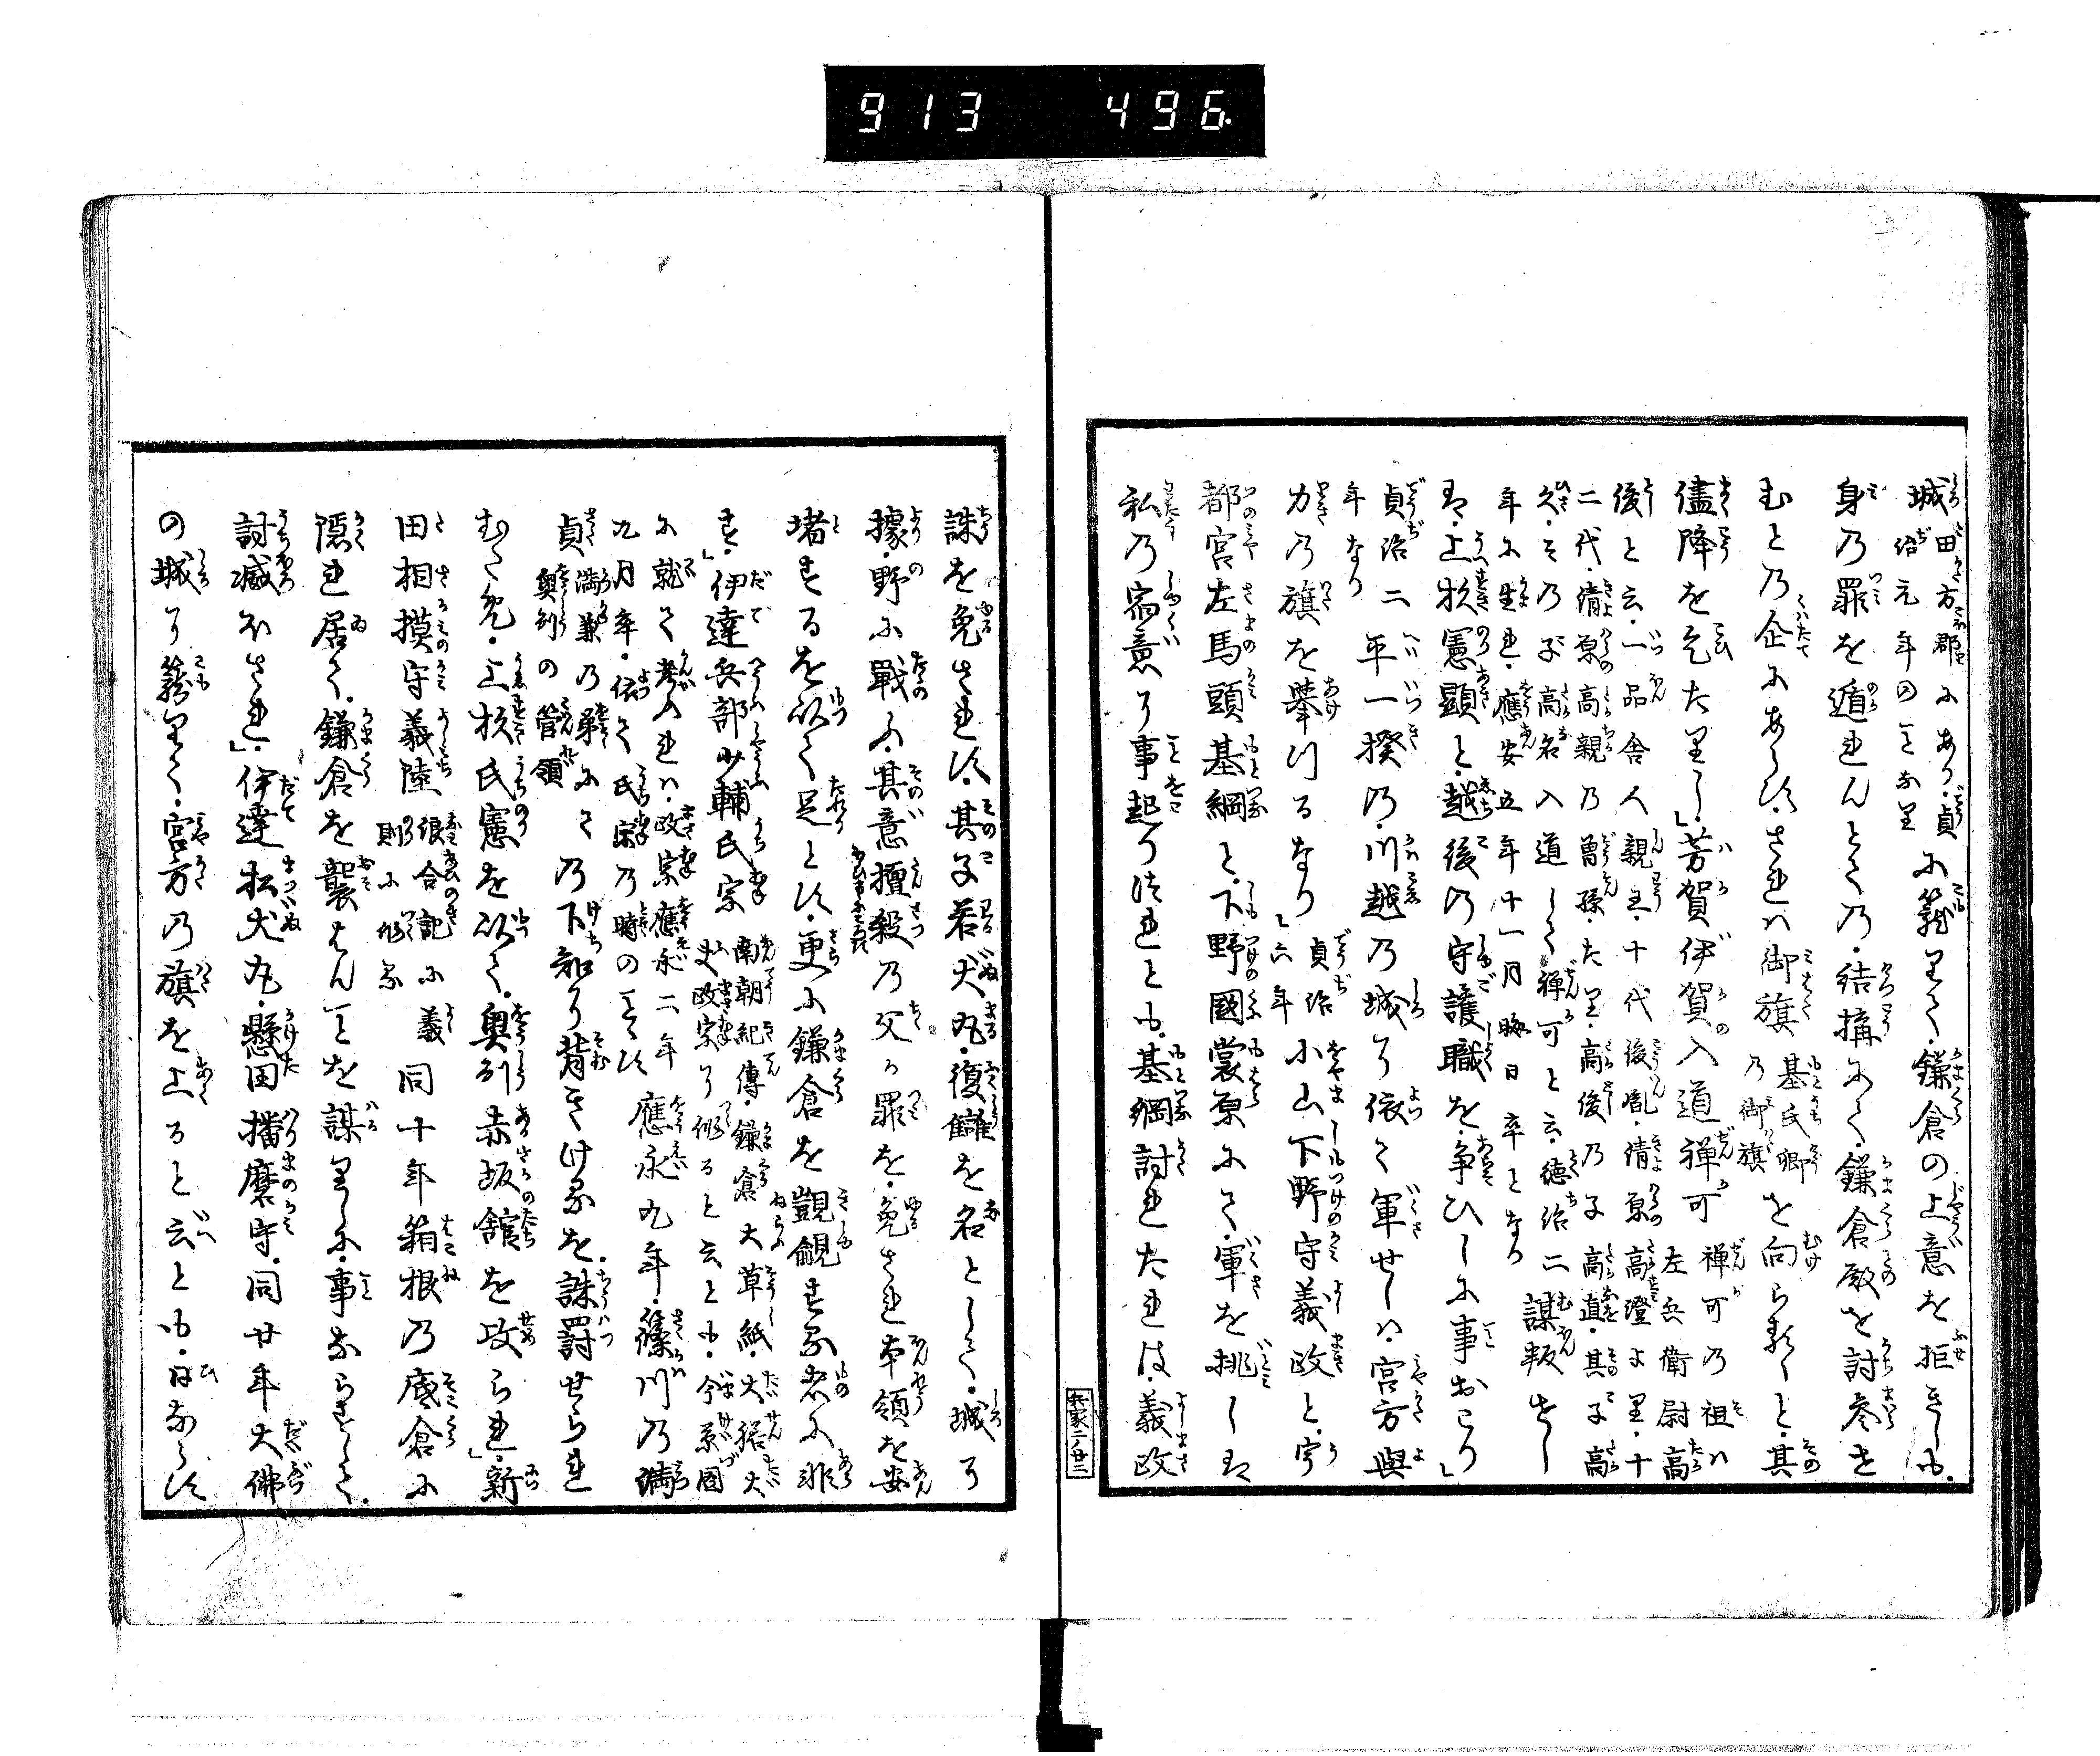 913 496
城田方郡にあり貞治元年のことなりに籠りて鎌倉の上意を拒きしも
身乃罪を遁れんとて乃結搆にて鎌倉殿を討奉せ
むと乃企にあらすされは御旗基氏卿乃御旗を向られくと其
儘降を乞たりし芳賀伊賀入道禅可禅可乃祖は左兵衛尉高
後と云一品舎人親王十代後胤清原高澄より十
二代清原高親乃曽孫たり高後乃子高直其子高
久その子高名入道して禅可と云徳治二
年に生れ應安五年十一月晦日卒となり謀叛せし
は上杦憲顕と越後乃守護職を争ひしに事おこり
貞治二年なり平一揆乃川越乃城に依て軍せしは宮方與
力乃旗を挙けるなり貞治六年小山下野守義政と宇
都宮左馬頭基綱と下野國裳原にて軍を挑しは
私乃宿意に事起りつれとも基綱討れたれは義政
兵家二ノ廿三
誅を免されす其子若犬丸復讎を名として城に
據野に戰ふ其意擅殺乃父の罪を免され本領を安
堵するを以て足とす更に鎌倉を覬覦する者に非
す伊達兵部少輔氏宗南朝紀傳鎌倉大草紙大
に就て考ふれは政宗應永
九月卒依て氏宗乃時のことす應永九年篠川乃満
貞満兼乃弟にて奥州の管領乃下知に背きけるを誅罸せられ
むため上杦氏憲を以て奥州赤坂舘を攻られ新
田相摸守義陸浪合記に義則に作る同十年箱根乃底倉に
隠れ居て鎌倉を襲はんことを謀りしに事ならすして
討滅ほされ伊達松犬丸懸田播磨守同廿年大佛
の城に籠りて宮方乃旗を上ると云とも日ならす